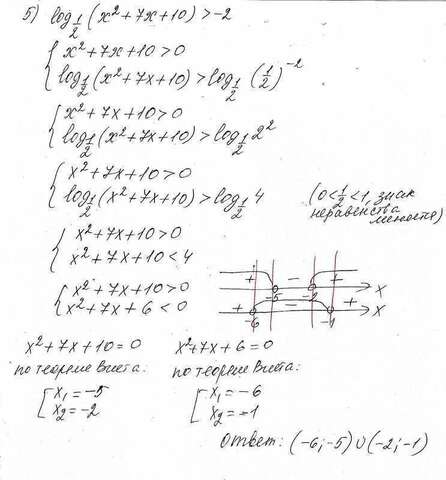 5) log½(x²+7x+10)>-2
{ x²+7x+10>0
log½(x²+7x+10)>log½(½)⁻²
{ x²+7x+10>0
log½(x²+7x+10)>log½2²
{ x²+7x+10>0
log½(x²+7x+10)>log½4 (0<½<1, знак
неравенства
меняется)
{ x²+7x+10>0
x²+7x+10<4
+ -5 − -2 + x
{ x²+7x+10>0
x²+7x+6<0
+ -6 − -1 + x
x²+7x+10=0 x²+7x+6=0
по теореме Виета: по теореме Виета:
[ x₁=-5 [ x₁=-6
x₂=-2 x₂=-1
Ответ: (-6;-5)∪(-2;-1)